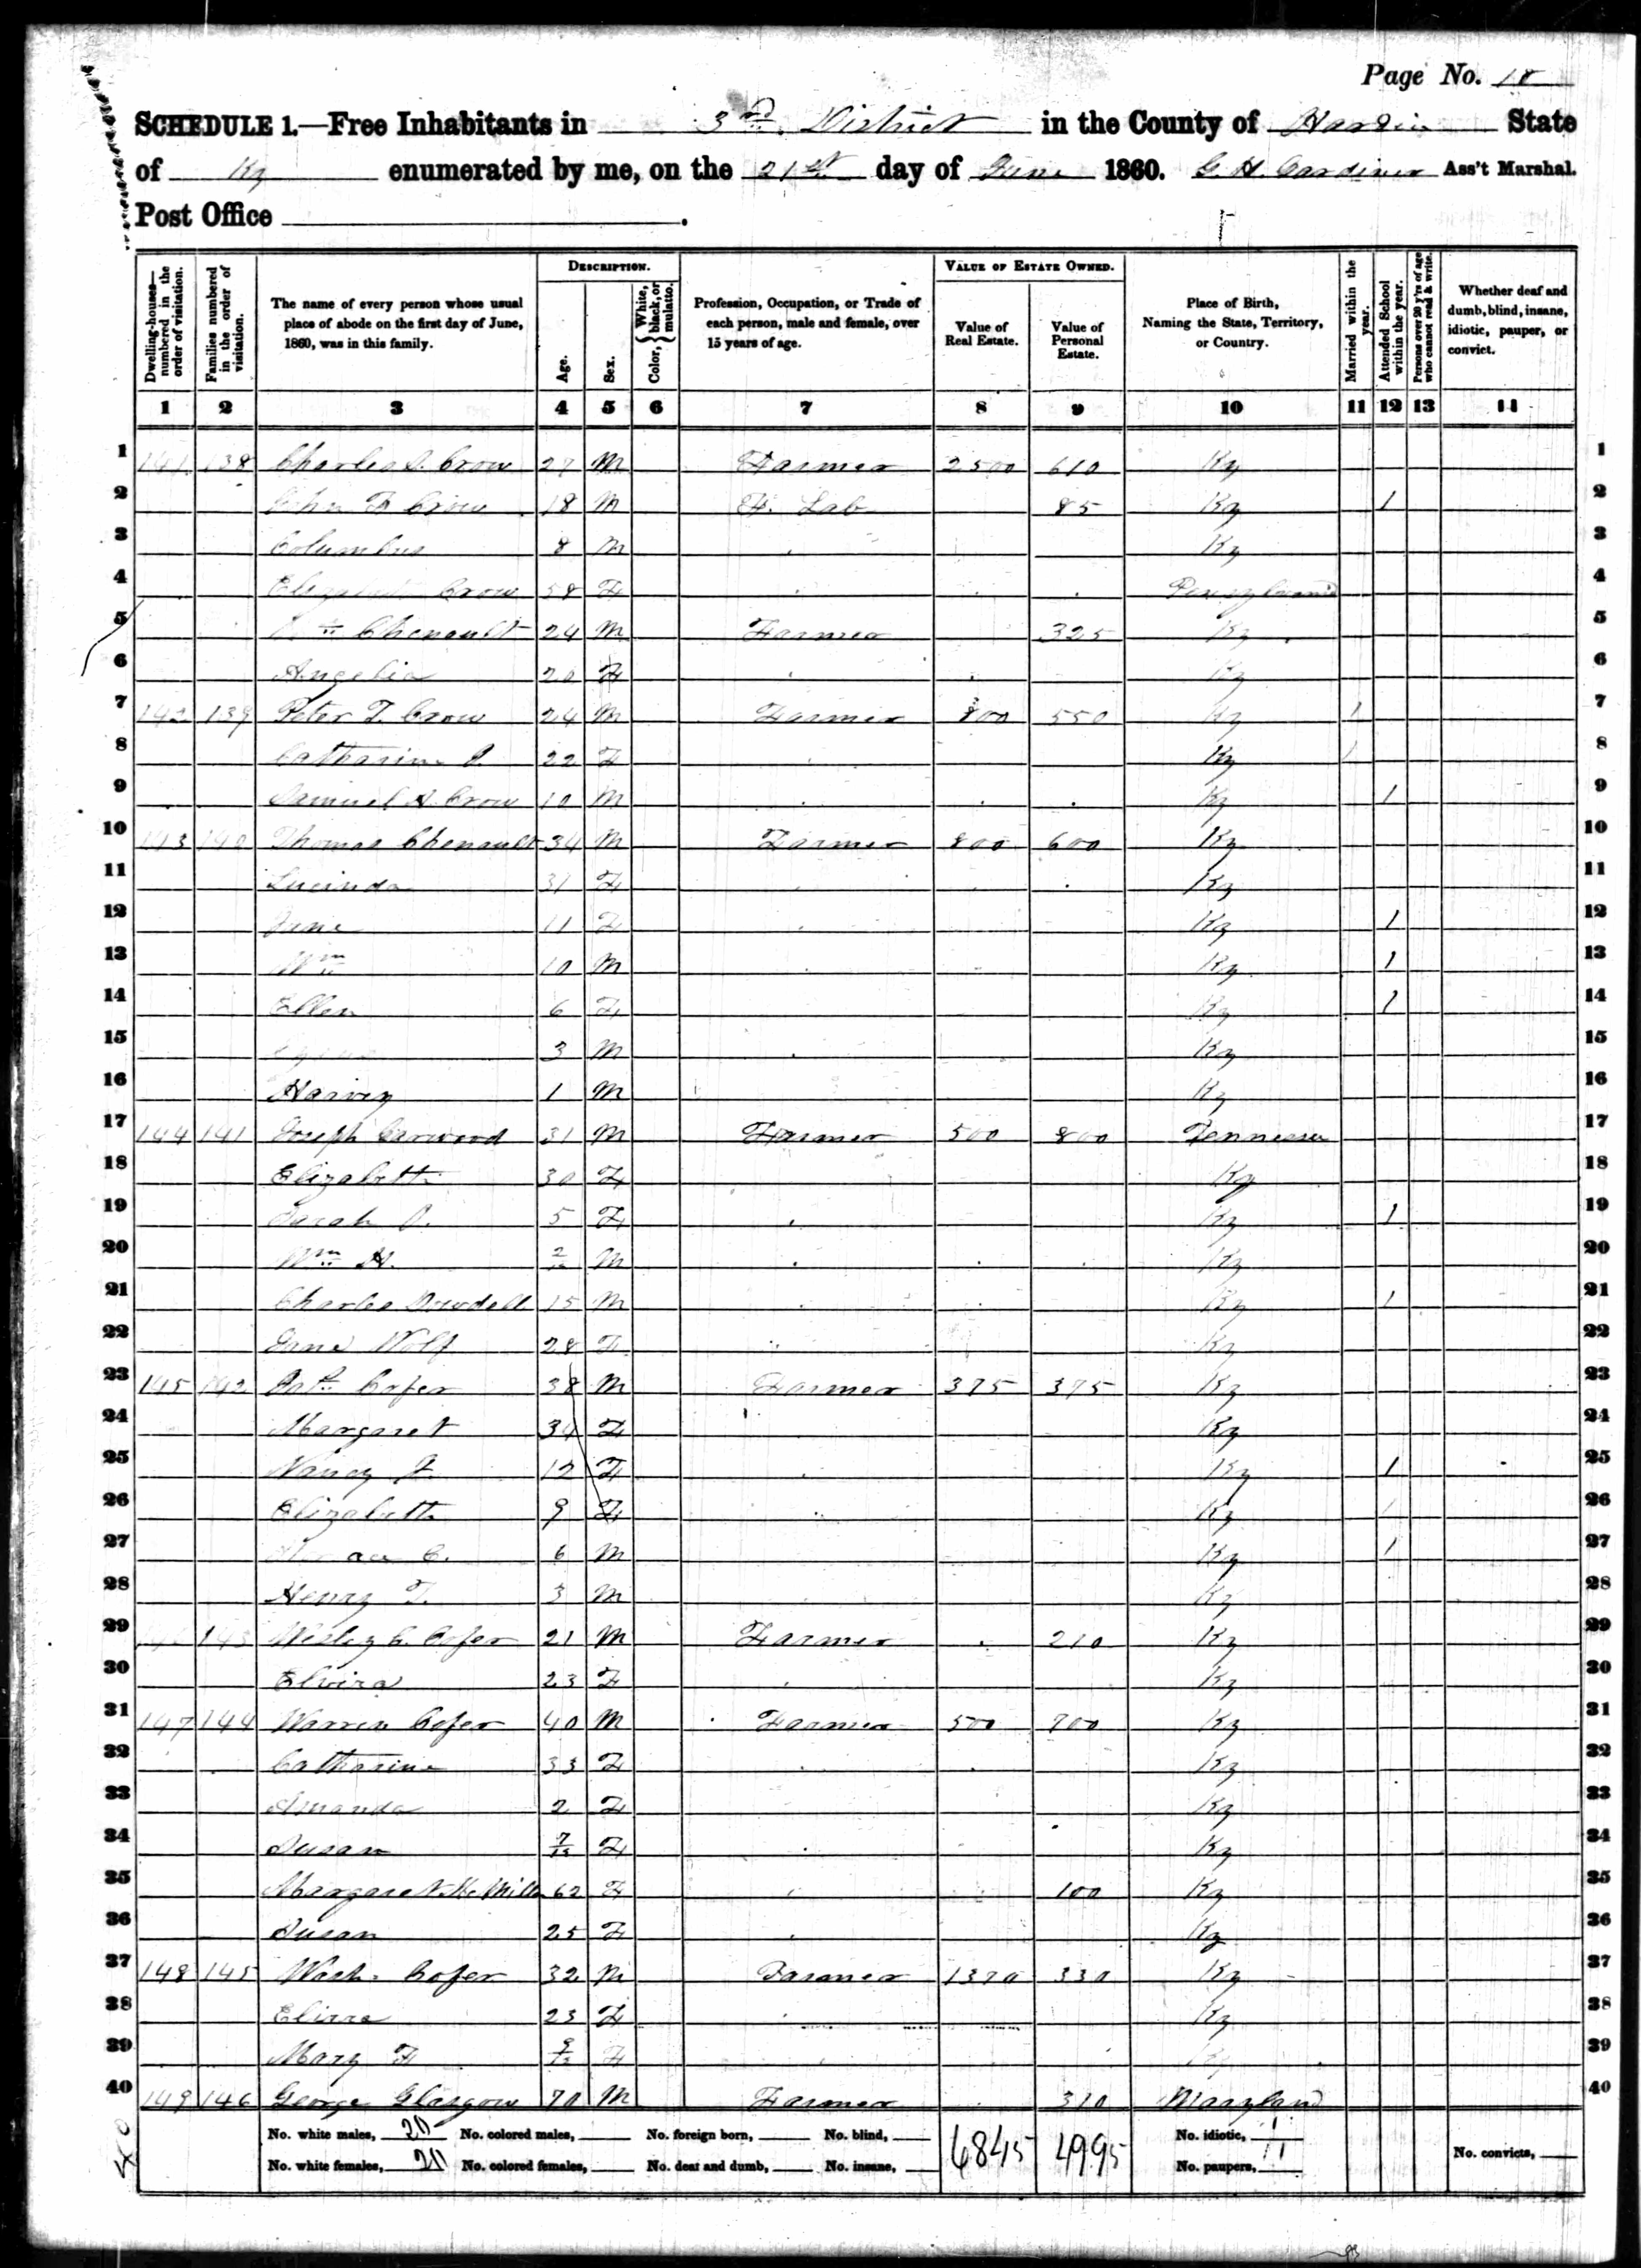 Page No. 18
SCHEDULE 1.—Free Inhabitants in 3rd District in the County of Hardin State
of Ky enumerated by me, on the 21st day of June 1860. G. H. Gardiner Ass't Marshal.
Post Office
Dwelling-houses—numbered in the order of visitation.
Families numbered in the order of visitation.
The name of every person whose usual place of abode on the first day of June, 1860, was in this family.
DESCRIPTION.
Age.
Sex.
Color, { White, black, or mulatto.
Profession, Occupation, or Trade of each person, male and female, over 15 years of age.
VALUE OF ESTATE OWNED.
Value of Real Estate.
Value of Personal Estate.
Place of Birth, Naming the State, Territory, or Country.
Married within the year.
Attended School within the year.
Persons over 20 y'rs of age who cannot read & write.
Whether deaf and dumb, blind, insane, idiotic, pauper, or convict.
1 2 3 4 5 6 7 8 9 10 11 12 13 14
1 141 138 Charles S. Crow 27 M Farmer 2500 610 Ky 1
2 John F Crow 18 M F. Lab 85 Ky 1 2
3 Columbus 8 M Ky 3
4 Elizabeth Crow 58 F Pennsylvania 4
5 Chenault 24 M Farmer 325 Ky 5
6 Angelia 20 F Ky 6
7 142 139 Peter T. Crow 24 M Farmer 800 550 Ky 1 7
8 Catharine 22 F Ky 1 8
9 Samuel H. Crow 10 M Ky 1 9
10 143 140 Thomas Chenault 34 M Farmer 800 600 Ky 10
11 Lucinda 31 F Ky 11
12 Jane 11 F Ky 1 12
13 Wm 10 M Ky 1 13
14 Ellen 6 F Ky 1 14
15 3 M Ky 15
16 Harvey 1 M Ky 16
17 144 141 Joseph Carwood 31 M Farmer 500 800 Tennessee 17
18 Elizabeth 30 F Ky 18
19 Sarah 5 F Ky 1 19
20 Wm H. 2/12 M Ky 20
21 Charles 15 M Ky 1 21
22 Jane Wolf 28 F Ky 22
23 145 142 Cofer 38 M Farmer 375 375 Ky 23
24 Margaret 34 F Ky 24
25 Nancy J. 12 F Ky 1 25
26 Elizabeth 9 F Ky 1 26
27 C. 6 M Ky 1 27
28 Henry T. 3 M Ky 28
29 146 143 Wesley C. Cofer 21 M Farmer 210 Ky 29
30 Elvira 23 F Ky 30
31 147 144 Warren Cofer 40 M Farmer 500 700 Ky 31
32 Catharine 33 F Ky 32
33 Amanda 2 F Ky 33
34 Susan 7/12 F Ky 34
35 Margaret 62 F 100 Ky 35
36 Susan 25 F Ky 36
37 148 145 Wash. Cofer 32 M Farmer 1370 330 Ky 37
38 23 F Ky 38
39 Mary F 9/12 F Ky 39
40 149 146 George Glasgow 70 M Farmer 310 Maryland 40
No. white males, 20 No. colored males, No. foreign born, No. blind, 6845 4995 No. idiotic,
No. white females, 20 No. colored females, No. deaf and dumb, No. insane, No. paupers, No. convicts,
40